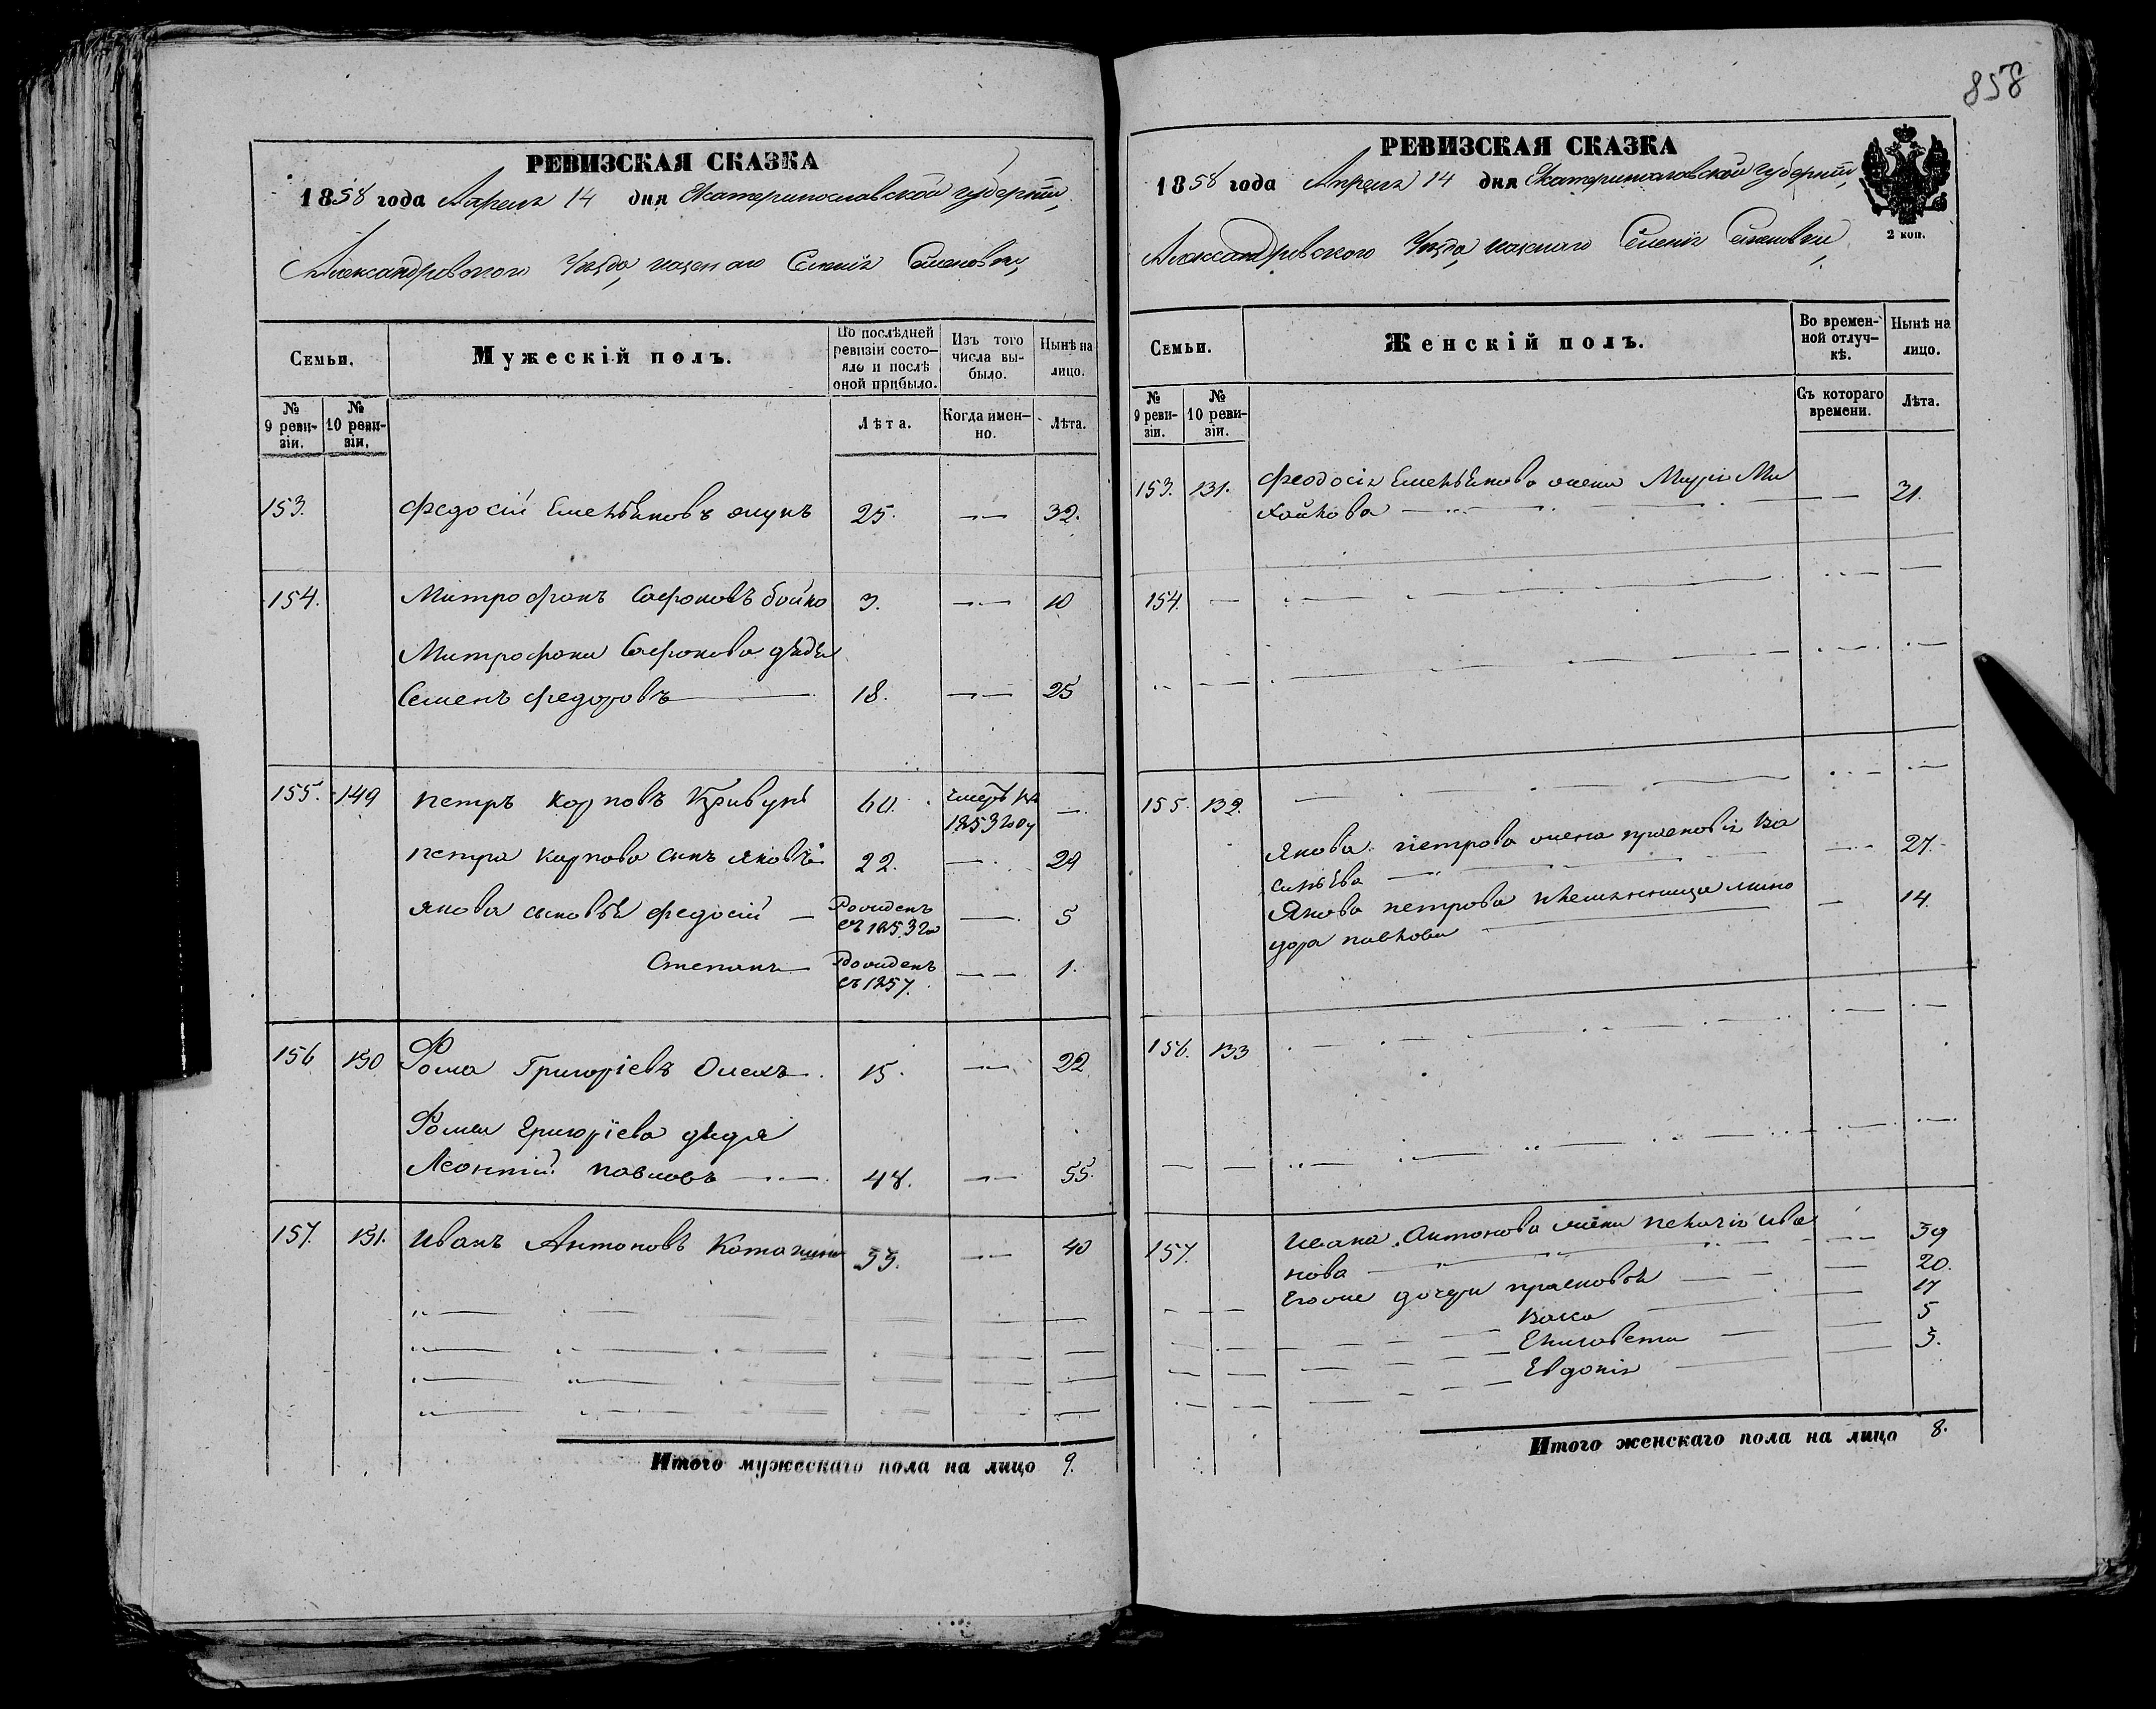 858
РЕВИЗСКАЯ СКАЗКА
1858 года Апреля 14 дня Екатеринославской губернии,
Александровского Уезда, казенаго Селенія Семеновки,
Семьи. Мужескій полъ. По послѣдней ревизіи состояло и послѣ оной прибыло. Изъ того числа выбыло. Нынѣ на лицо.
№ 9 ревизіи. № 10 ревизіи. Лѣта. Когда именно. Лѣта.
153. Федосій Емельяновъ 25. — 32.
154. Митрофанъ Софроновъ бойко 3. — 10
Митрофана Софронова дядя
Семенъ Федоровъ — 18. — 25
155. 149 петръ карповъ Кривунь 60. умеръ въ 1853 году —
петра карпова сынъ яковъ 22. — 29
якова сыновья федосій — Рожденъ въ 1853 го — 5
Степанъ — Рожденъ въ 1857. — 1.
156 150 Фома Григоріевъ 15. — 22
Фомы Григоріева дядя
Леонтій павловъ — 48. — 55.
157. 151. иванъ Антоновъ 33. — 40
Итого мужескаго пола на лицо 9.
РЕВИЗСКАЯ СКАЗКА
1858 года Апреля 14 дня Екатеринославской губерніи,
Александровского Уезда, казенаго Селенія Семеновки,
2 коп.
Семьи. Женскій полъ. Во временной отлучкѣ. Нынѣ на лицо.
№ 9 ревизіи. № 10 ревизіи. Съ котораго времени. Лѣта.
153. 131. Феодосія Емельянова жена Ми
хайлова — 31.
154. —
155. 132.
Якова петрова жена прасковія Ва
сильева — 27.
Якова петрова племянница мино
дора павлова — 14.
156. 133
157. ивана Антонова жена пелагія ива
нова — 39
Егоже дочери прасковья — 20.
Васса — 17
Елисовета — 5
Евдокія — 3.
Итого женскаго пола на лицо 8.